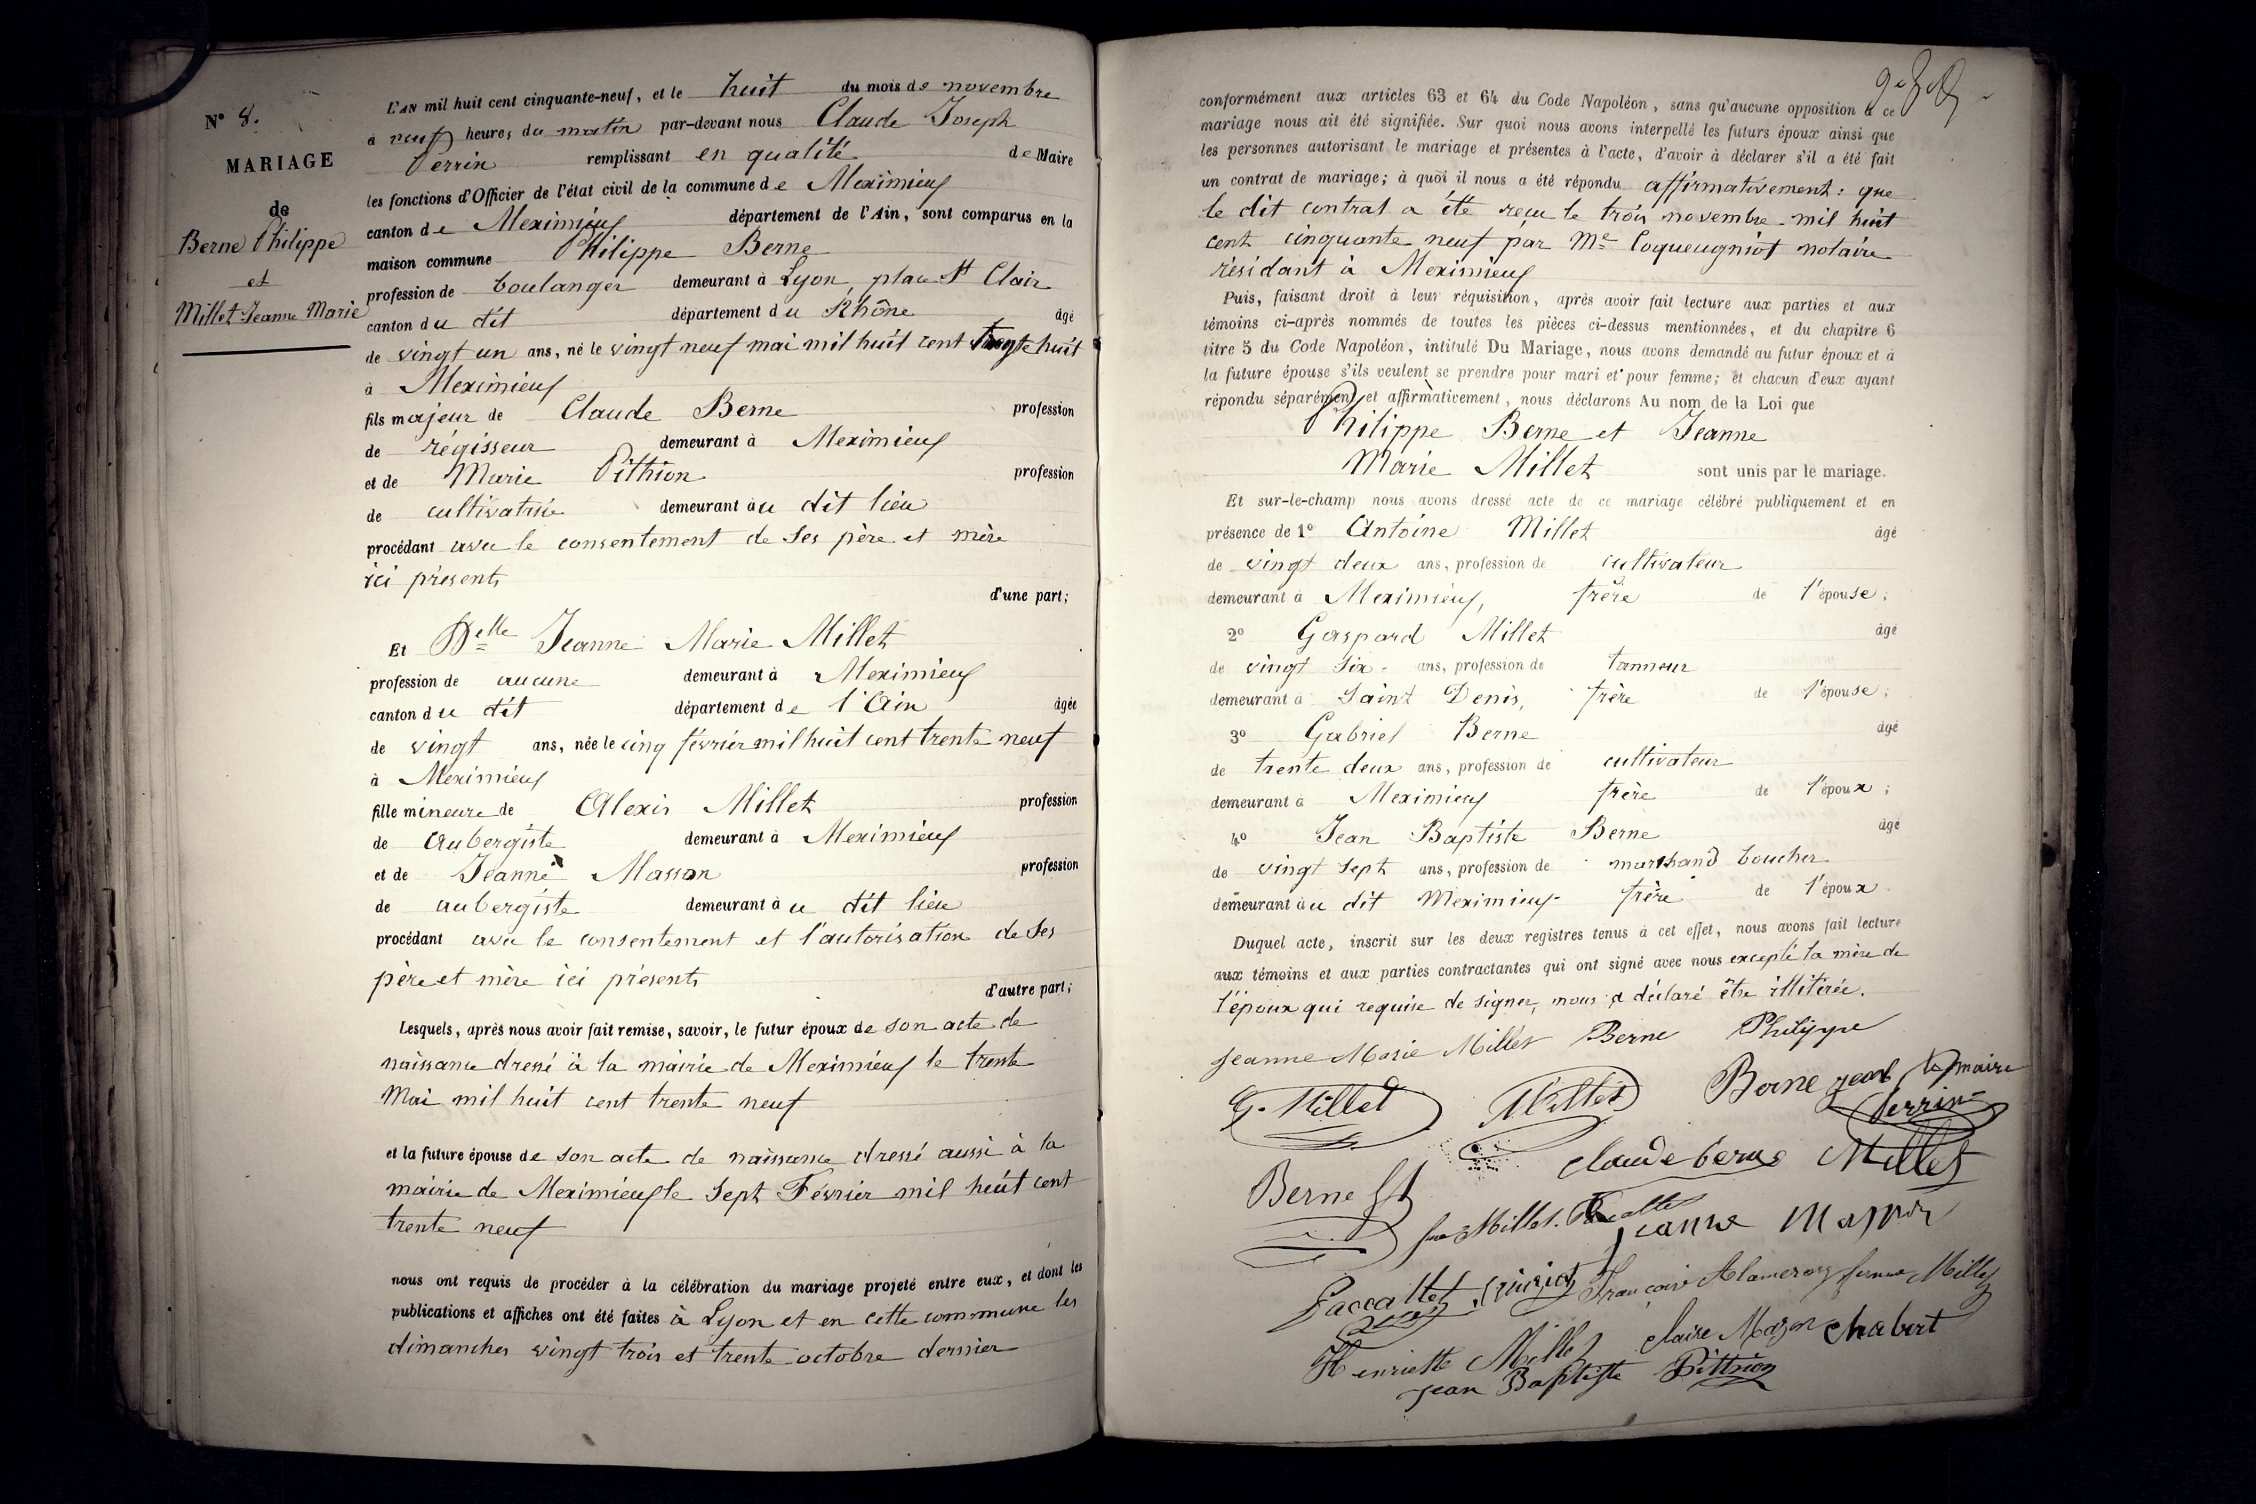 N° 8.
MARIAGE
de
Berne Philippe
et
Millet Jeanne Marie
L'AN mil huit cent cinquante-neuf, et le huit du mois de novembre
à neuf heures du matin par-devant nous Claude Joseph
Perrin remplissant en qualité de Maire
les fonctions d'Officier de l'état civil de la commune de Meximieux
canton de Meximieux département de l'Ain, sont comparus en la
maison commune Philippe Berne
profession de boulanger demeurant à Lyon, place St Clair
canton du dit département du Rhône âgé
de vingt un ans, né le vingt neuf mai mil huit cent trente huit
à Meximieux
fils majeur de Claude Berne profession
de régisseur demeurant à Meximieux
et de Marie Pithion profession
de cultivatrice demeurant au dit lieu
procédant avec le consentement de ses père et mère
ici présents
d'une part;
Et Delle Jeanne Marie Millet
profession de aucune demeurant à Meximieux
canton du dit département de l'Ain âgée
de vingt ans, née le cinq février mil huit cent trente neuf
à Meximieux
fille mineure de Alexis Millet profession
de Aubergiste demeurant à Meximieux
et de Jeanne Masson profession
de aubergiste demeurant au dit lieu
procédant avec le consentement et l'autorisation de ses
père et mère ici présents
d'autre part;
Lesquels, après nous avoir fait remise, savoir, le futur époux de son acte de
naissance dressé à la mairie de Meximieux le trente
Mai mil huit cent trente neuf
et la future épouse de son acte de naissance dressé aussi à la
mairie de Meximieux le sept Février mil huit cent
trente neuf
nous ont requis de procéder à la célébration du mariage projeté entre eux, et dont les
publications et affiches ont été faites à Lyon et en cette commune les
dimanches vingt trois et trente octobre dernier
conformément aux articles 63 et 64 du Code Napoléon, sans qu'aucune opposition à ce
mariage nous ait été signifiée. Sur quoi nous avons interpellé les futurs époux ainsi que
les personnes autorisant le mariage et présentes à l'acte, d'avoir à déclarer s'il a été fait
un contrat de mariage; à quoi il nous a été répondu affirmativement: que
le dit contrat a été reçu le trois novembre mil huit
cent cinquante neuf par Me Coqueugniot notaire
résidant à Meximieux
Puis, faisant droit à leur réquisition, après avoir fait lecture aux parties et aux
témoins ci-après nommés de toutes les pièces ci-dessus mentionnées, et du chapitre 6
titre 5 du Code Napoléon, intitulé Du Mariage, nous avons demandé au futur époux et à
la future épouse s'ils veulent se prendre pour mari et pour femme; et chacun d'eux ayant
répondu séparément et affirmativement, nous déclarons Au nom de la Loi que
Philippe Berne et Jeanne
Marie Millet sont unis par le mariage.
Et sur-le-champ nous avons dressé acte de ce mariage célébré publiquement et en
présence de 1° Antoine Millet âgé
de vingt deux ans, profession de cultivateur
demeurant à Meximieux, frère de l'épouse;
2° Gaspard Millet âgé
de vingt six ans, profession de tanneur
demeurant à Saint Denis, frère de l'épouse;
3° Gabriel Berne âgé
de trente deux ans, profession de cultivateur
demeurant à Meximieux frère de l'époux;
4° Jean Baptiste Berne âgé
de vingt sept ans, profession de marchand boucher
demeurant au dit Meximieux frère de l'époux
Duquel acte, inscrit sur les deux registres tenus à cet effet, nous avons fait lecture
aux témoins et aux parties contractantes qui ont signé avec nous excepté la mère de
l'époux qui requise de signer, nous a déclaré être illitérée.
Jeanne Marie Millet Berne Philippe
G. Millet Millet Berne le maire
Perrin
Claude berne Millet
Berne
Millet Jeanne Masson
Millet
Henriette Millet Claire Mazon Chabert
Jean Baptiste Pithion